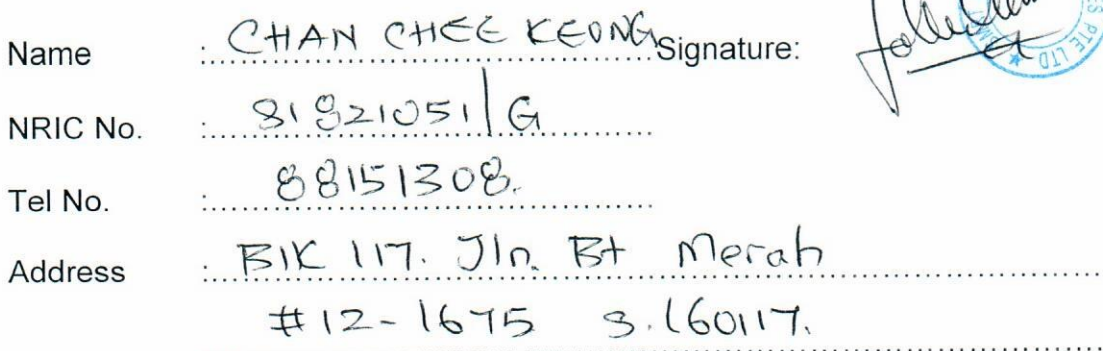 Name : CHAN CHEE KEONG Signature:
NRIC No. : S1821051/G
Tel No. : 88151308.
Address : Blk 117. Jln. Bt Merah
#12-1675 S.160117.
PTE LTD